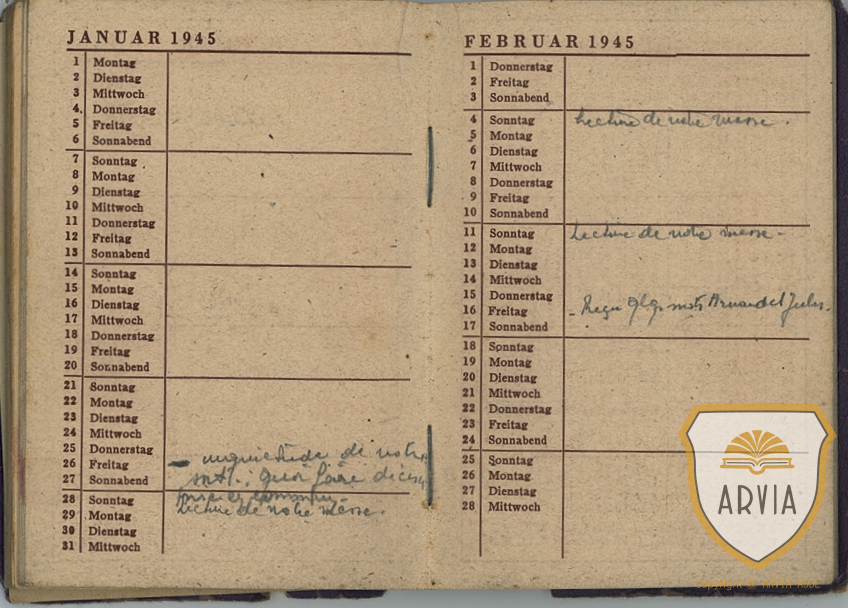 JANUAR 1945
1 Montag
2 Dienstag
3 Mittwoch
4. Donnerstag
5 Freitag
6 Sonnabend
7 Sonntag
8 Montag
9 Dienstag
10 Mittwoch
11 Donnerstag
12 Freitag
13 Sonnabend
14 Sonntag
15 Montag
16 Dienstag
17 Mittwoch
18 Donnerstag
19 Freitag
20 Sonnabend
21 Sonntag
22 Montag
23 Dienstag
24 Mittwoch
25 Donnerstag
26 Freitag
27 Sonnabend
28 Sonntag
29 Montag
30 Dienstag
31 Mittwoch
- inquiétude de notre
quoi faire
commun.
Lecture de notre messe.
FEBRUAR 1945
1 Donnerstag
2 Freitag
3 Sonnabend
4 Sonntag Lecture de notre messe.
5 Montag
6 Dienstag
7 Mittwoch
8 Donnerstag
9 Freitag
10 Sonnabend
11 Sonntag Lecture de notre messe.
12 Montag
13 Dienstag
14 Mittwoch
15 Donnerstag
16 Freitag - Reçu qlqs mots Armand et Jules.
17 Sonnabend
18 Sonntag
19 Montag
20 Dienstag
21 Mittwoch
22 Donnerstag
23 Freitag
24 Sonnabend
25 Sonntag
26 Montag
27 Dienstag
28 Mittwoch
ARVIA